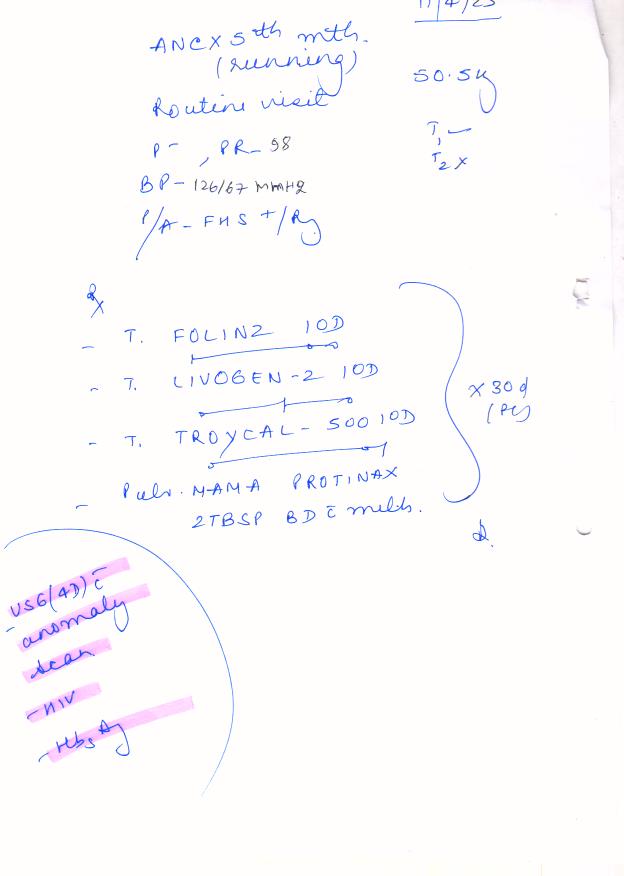 11/4/23
ANCX5th mth.
(running)
50.5kg
Routine visit
T1 ✓
T2 X
P- , PR- 98
BP- 126/67 MMHg
P/A - FHS +/Rg
Rx
- T. FOLINZ 1OD
- T. LIVOGEN-Z 1OD
- T. TROYCAL-500 1OD
X 30d
(PC)
- Pulv. MAMA PROTINAX
2TBSP BD c̄ milk.
USG(4D) c̄
- anomaly
scan
- HIV
- HbsAg